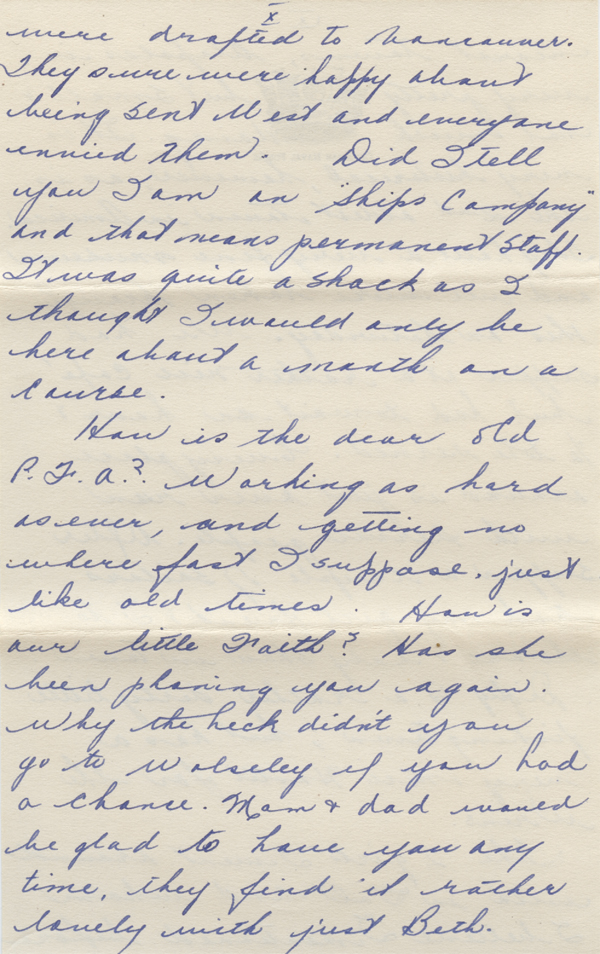 X
were drafted to Vancouver.
They sure were happy about
being sent West and everyone
envied them. Did I tell
you I am on "Ships Company"
and that means permanent staff.
It was quite a shock as I
thought I would only be
here about a month on a
course.
How is the dear old
P.F.A.? Working as hard
as ever, and getting no
where fast I suppose, just
like old times. How is
our little Faith? Has she
been phoning you again.
Why the heck didn't you
go to Wolseley if you had
a chance. Mom & dad would
be glad to have you any
time, they find it rather
lonely with just Beth.